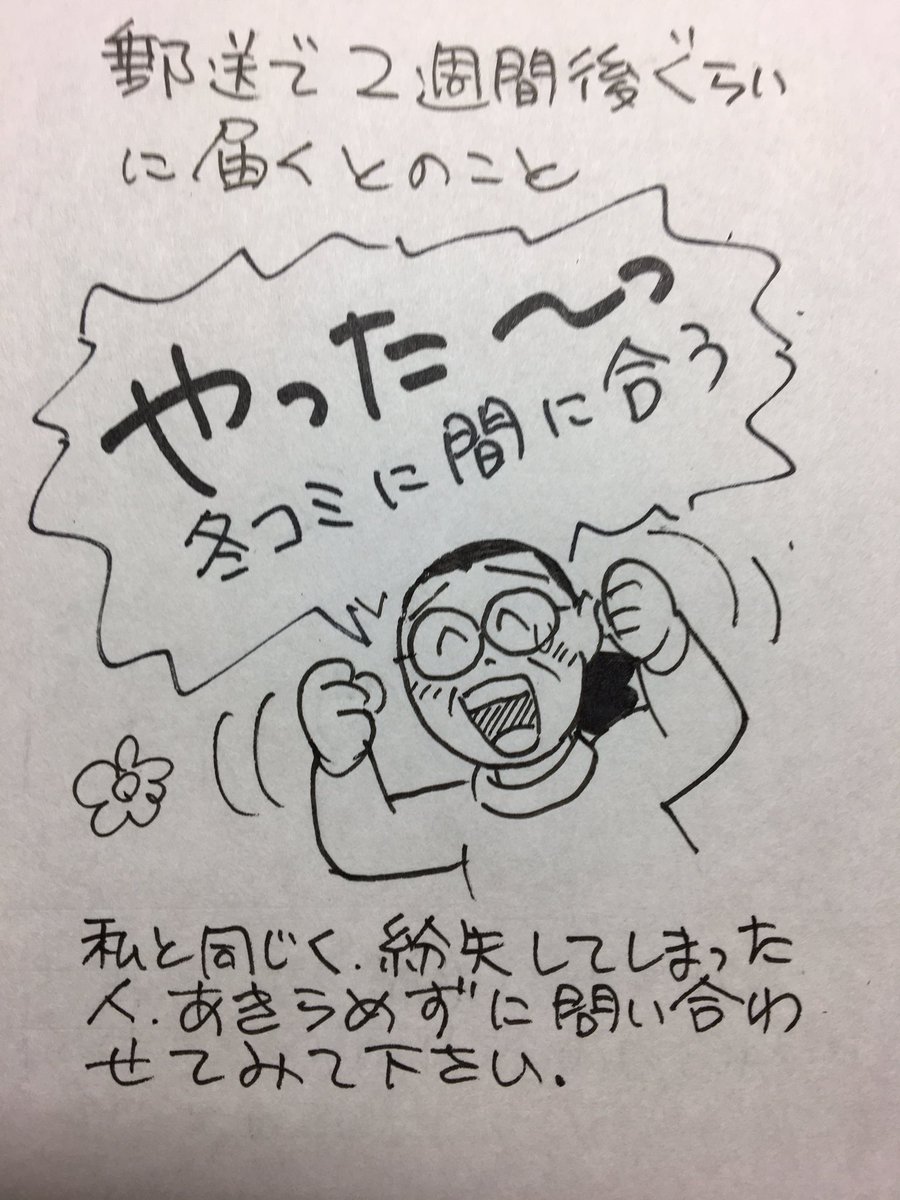 郵送で2週間後ぐらい
に届くとのこと
やった〜っ
冬コミに間に合う
私と同じく.紛失してしまった
人.あきらめずに問い合わ
せてみて下さい.